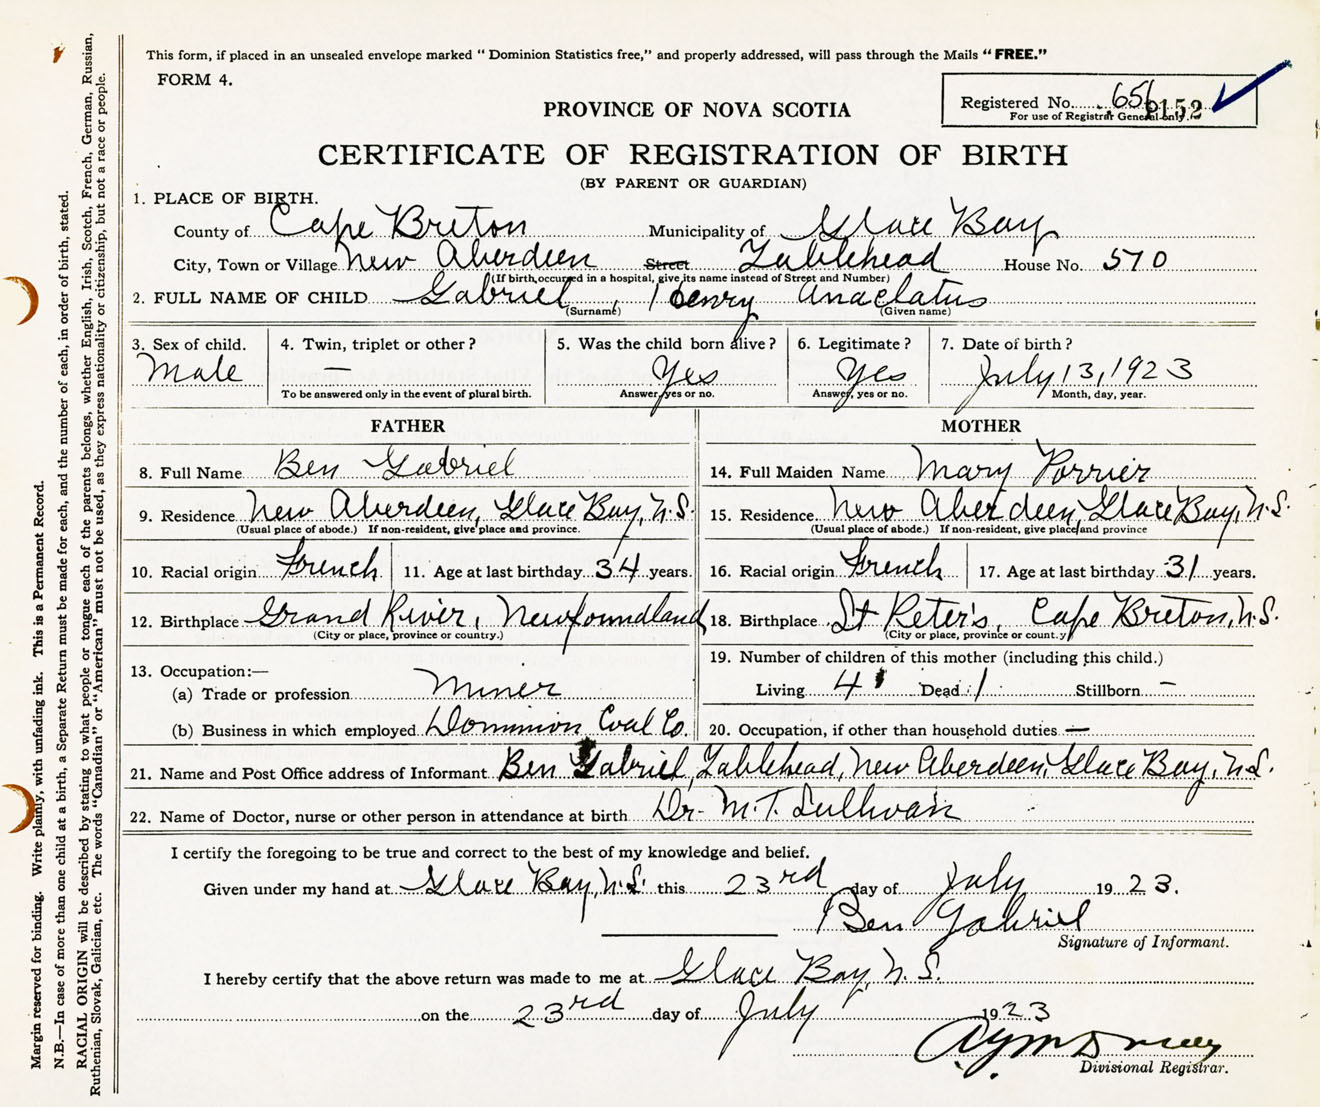 This form, if placed in an unsealed envelope marked "Dominion Statistics free," and properly addressed, will pass through the Mails "FREE."
FORM 4.
Registered No. 656 2152
For use of Registrar General only.
PROVINCE OF NOVA SCOTIA
CERTIFICATE OF REGISTRATION OF BIRTH
(BY PARENT OR GUARDIAN)
1. PLACE OF BIRTH.
County of Cape Breton Municipality of Glace Bay
City, Town or Village New Aberdeen Street Tablehead House No. 570
(If birth occurred in a hospital, give its name instead of Street and Number)
2. FULL NAME OF CHILD Gabriel, Henry Anaclatus
(Surname) (Given name)
3. Sex of child. 4. Twin, triplet or other? 5. Was the child born alive? 6. Legitimate? 7. Date of birth?
Male — Yes Yes July 13, 1923
To be answered only in the event of plural birth. Answer, yes or no. Answer, yes or no. Month, day, year.
FATHER
8. Full Name Ben Gabriel
9. Residence New Aberdeen, Glace Bay, N.S.
(Usual place of abode.) If non-resident, give place and province.
10. Racial origin French 11. Age at last birthday 34 years.
12. Birthplace Grand River, Newfoundland
(City or place, province or country.)
13. Occupation:—
(a) Trade or profession Miner
(b) Business in which employed Dominion Coal Co.
MOTHER
14. Full Maiden Name Mary Porrier
15. Residence New Aberdeen, Glace Bay, N.S.
(Usual place of abode.) If non-resident, give place and province
16. Racial origin French 17. Age at last birthday 31 years.
18. Birthplace St Peter's, Cape Breton, N.S.
(City or place, province or count.y
19. Number of children of this mother (including this child.)
Living 4 Dead 1 Stillborn —
20. Occupation, if other than household duties —
21. Name and Post Office address of Informant Ben Gabriel, Tablehead, New Aberdeen, Glace Bay, N.S.
22. Name of Doctor, nurse or other person in attendance at birth Dr. M.T. Sullivan
I certify the foregoing to be true and correct to the best of my knowledge and belief.
Given under my hand at Glace Bay, N.S. this 23rd day of July 1923.
Ben Gabriel
Signature of Informant.
I hereby certify that the above return was made to me at Glace Bay, N.S.
on the 23rd day of July 1923
Divisional Registrar.
Margin reserved for binding. Write plainly, with unfading ink. This is a Permanent Record.
N.B.—In case of more than one child at a birth, a Separate Return must be made for each, and the number of each, in order of birth, stated.
RACIAL ORIGIN will be described by stating to what people or tongue each of the parents belongs, whether English, Irish, Scotch, French, German, Russian,
Ruthenian, Slovak, Galician, etc. The words "Canadian" or "American" must not be used, as they express nationality or citizenship, but not a race or people.